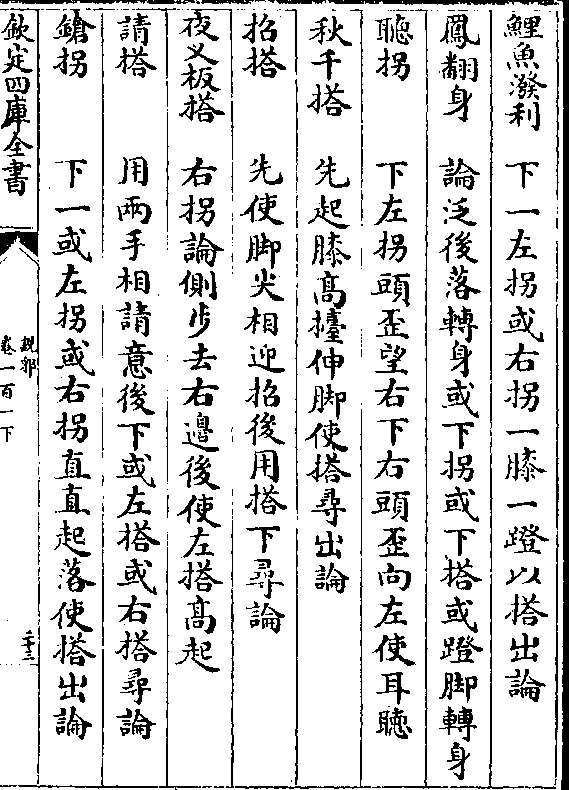 鯉魚潑利　下一左拐或右拐一膝一蹬以搭出論
鳳翻身　論泛後落轉身或下拐或下搭或蹬脚轉身
聽拐　下左拐頭歪望右下右頭歪向左使耳聽
秋千搭　先起膝高擡伸脚使搭尋出論
招搭　先使脚尖相迎招後用搭下尋論
夜乂板搭　右拐論側步去右邉後使左搭高起
請搭　用兩手相請意後下或左搭或右搭尋論
鎗拐　下一或左拐或右拐直直起落使搭出論
欽定四庫全書　說郛　卷一百一下　二十三